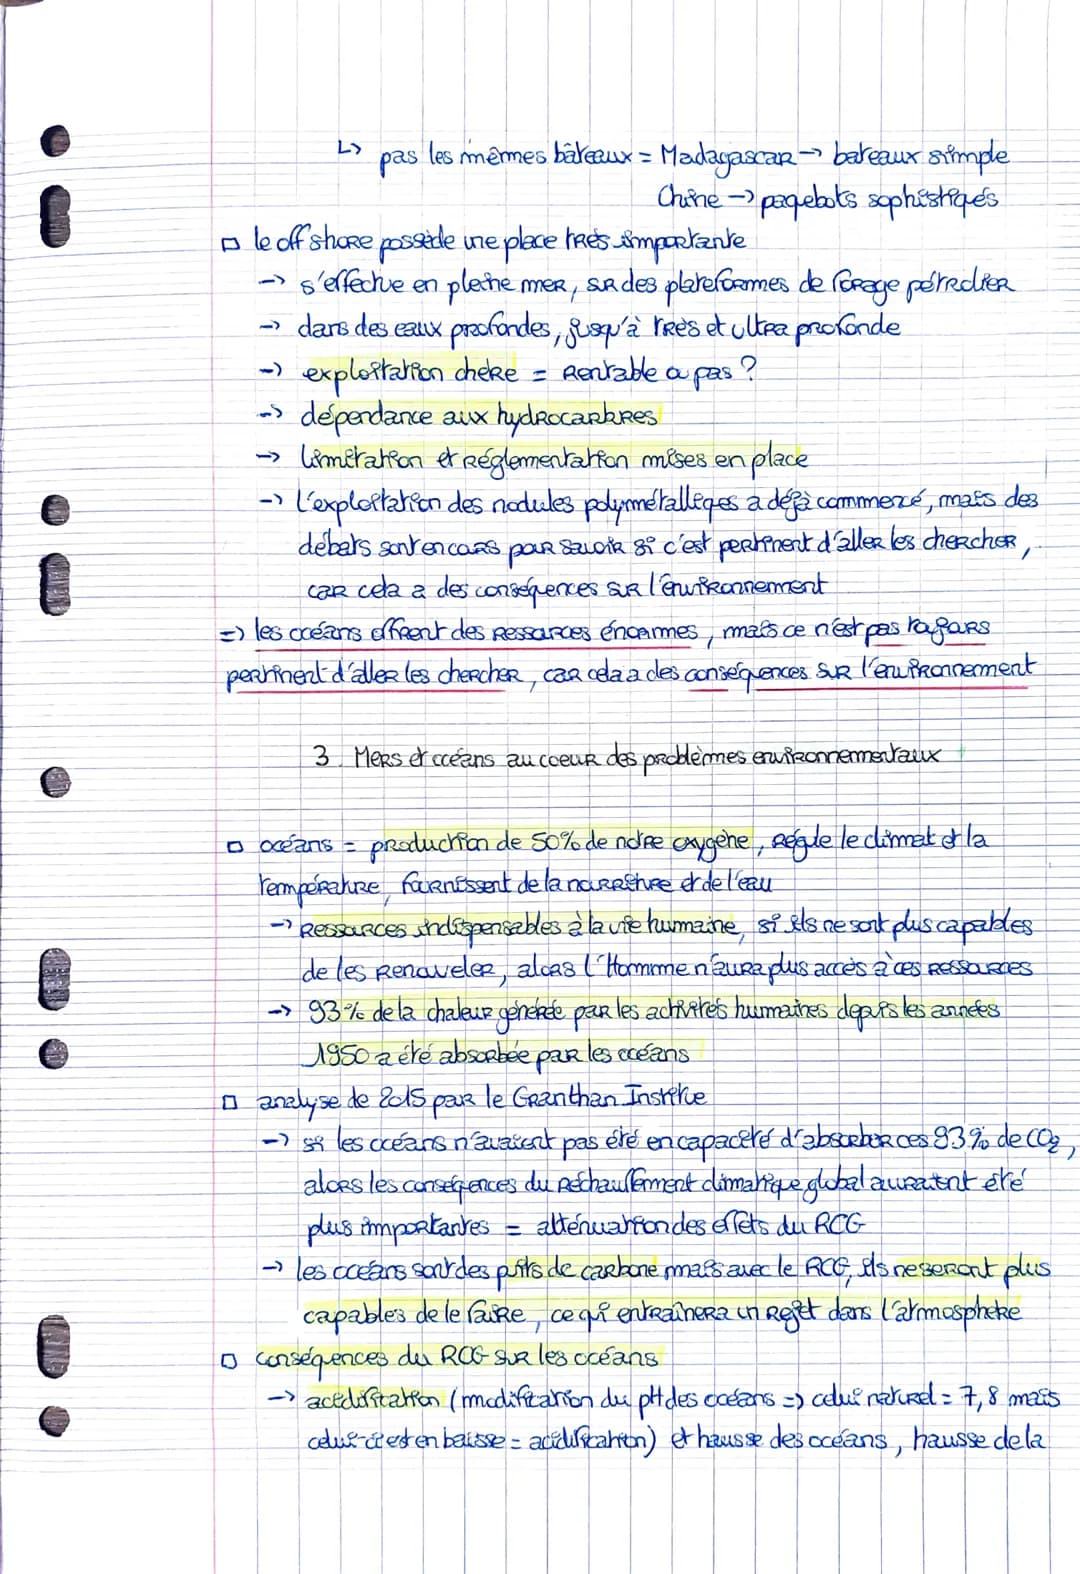 ↳ pas les mêmes bâteaux = Madagascar → bateaux simple
Chine → paquebots sophistiqués
▫ le offshore possède une place très importante
→ s'effectue en pleine mer, sur des plateformes de forage pétrolier
→ dans des eaux profondes, jusqu'à très et ultra profonde
→ exploitation chère = Rentable ou pas ?
→ dépendance aux hydrocarbures
→ limitation et réglementation mises en place
→ l'exploitation des nodules polymétalliques a déjà commencé, mais des
débats sont en cours pour savoir si c'est pertinent d'aller les chercher,
car cela a des conséquences sur l'environnement
=> les océans offrent des ressources énormes, mais ce n'est pas toujours
pertinent d'aller les chercher, car cela a des conséquences sur l'environnement
3. Mers et océans au coeur des problèmes environnementaux
▫ océans = production de 50% de notre oxygène, régule le climat et la
température, fournissent de la nourriture et de l'eau
→ Ressources indispensables à la vie humaine, si ils ne sont plus capables
de les renouveler, alors l'Homme n'aura plus accès à ces ressources
→ 93% de la chaleur générée par les activités humaines depuis les années
1950 a été absorbée par les océans
▫ analyse de 2015 par le Granthan Institue
→ si les océans n'avaient pas été en capacité d'absorber ces 93% de CO₂,
alors les conséquences du réchauffement climatique global auraient été
plus importantes = atténuation des effets du RCG
→ les océans sont des puits de carbone mais avec le RCG, ils ne seront plus
capables de le faire, ce qui entraînera un rejet dans l'atmosphère
▫ conséquences du RCG sur les océans
→ acidification (modification du pH des océans => celui naturel = 7,8 mais
celui-ci est en baisse = acidification) et hausse des océans, hausse de la